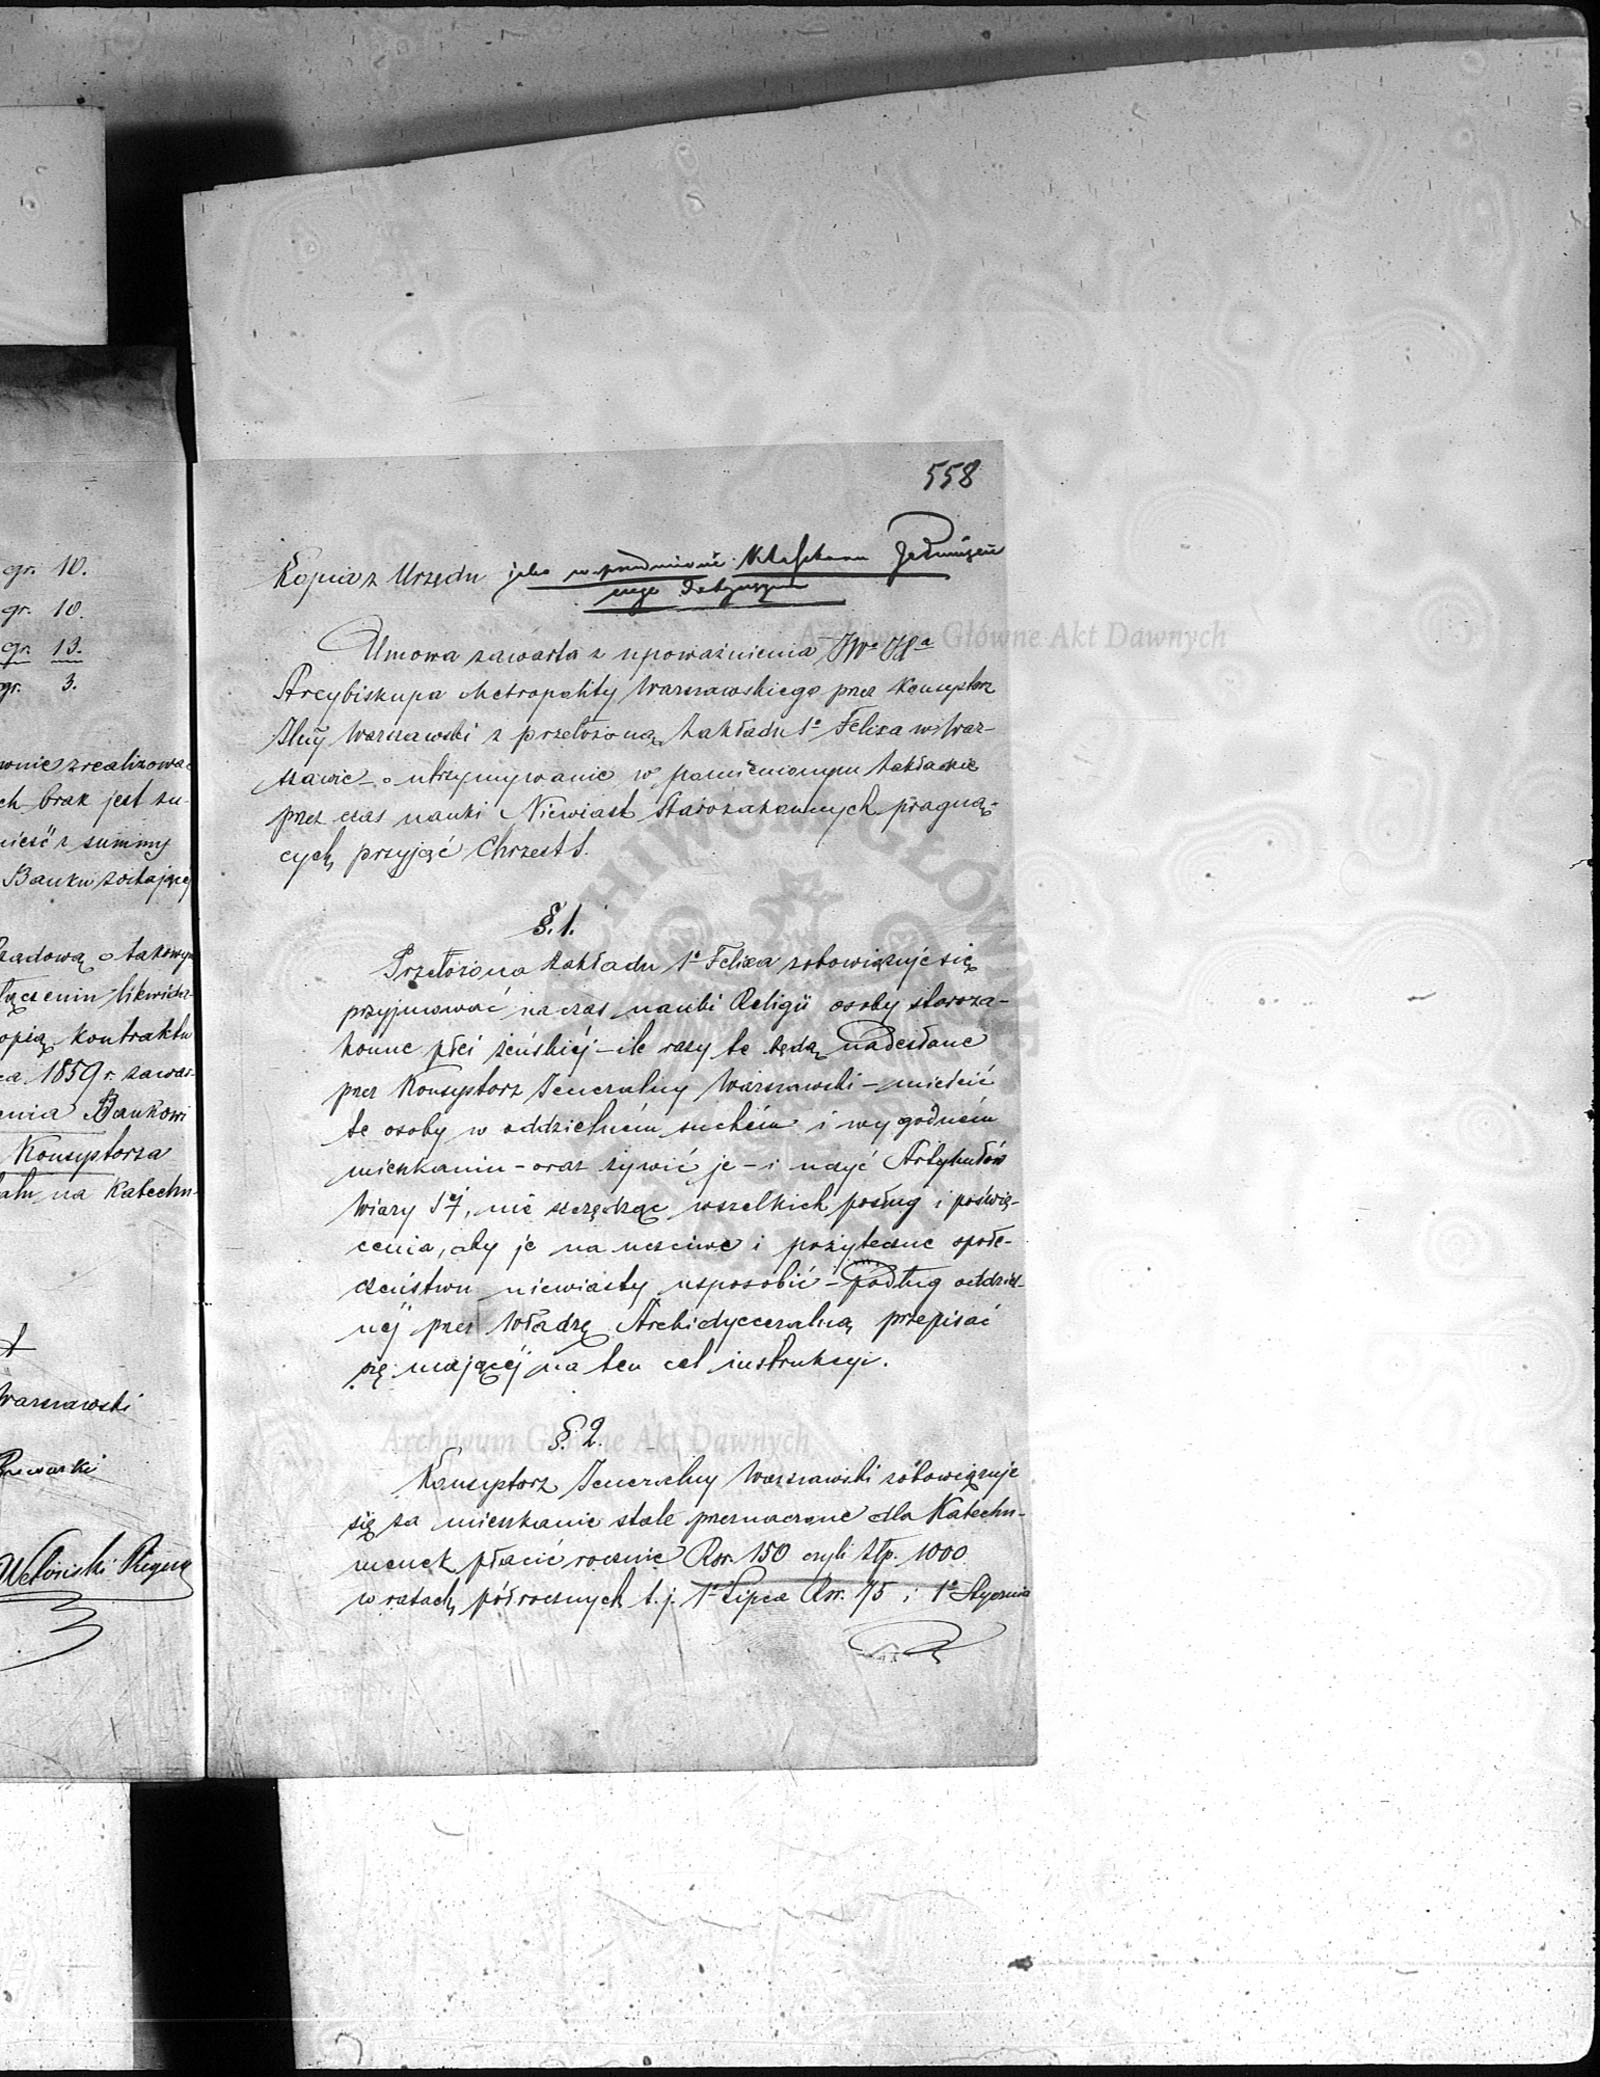 gr. 10.
gr. 10.
gr. 13.
gr. 3.
wnie zrealizować
ch brak jest su-
nieść z summy
Banku zostającej
Rządową o takowym
łączeniu likwida-
opią kontraktu
ca 1859 r. zawar-
enia Bankowi
Konsystorza
na Katechu-
Warszawski
558
Kopia z Urzędu jako w
Umowa zawarta z upoważnienia JWo JXa
Arcybiskupa Metropolity Warszawskiego przez Konsystorz
Jlny Warszawski z przełożoną Zakładu So Felixa w War-
szawie – o utrzymywanie w pomienionym Zakładzie
przez czas nauki Niewiast Starozakonnych pragną-
cych przyjąć Chrzest S.
§. 1.
Przełożona Zakładu So Felixa zobowiązuje się
przyjmować na czas nauki Religii osoby staroza-
konne płci żeńskiéj – ile razy te będą nadesłane
przez Konsystorz Jeneralny Warszawski – mieścić
te osoby w oddzielném suchém i wygodném
mieszkaniu – oraz żywić je – i uczyć Artykułów
Wiary Séj, nie szczędząc wszelkich posług i poświę-
cenia, aby je na uczciwe i pożyteczne społe-
czeństwu niewiasty usposobić – podług oddziel-
néj przez Władzę Archidyecezalną przepisać
się mającéj na ten cel instrukcyi.
§. 2.
Konsystorz Jeneralny Warszawski zobowiązuje
się za mieszkanie stale przeznaczone dla Katechu-
menek płacić rocznie Rsr. 150 czyli Złp. 1000
w ratach półrocznych t. j. 1o Lipca Rsr. 75 i 1o Stycznia
Archiwum Główne Akt Dawnych
Archiwum Główne Akt Dawnych